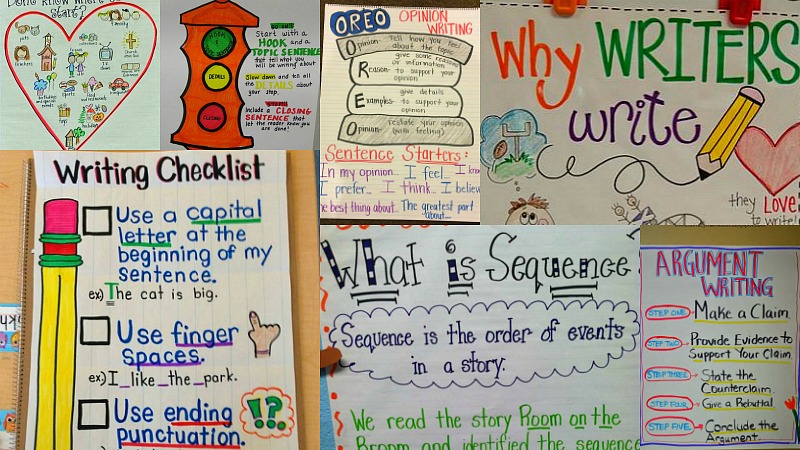 Dont know where to
start?
Family
pets
friends
teachers
sports
TV shows
food and restaurants
birthdays
and special
events
toys
holidays
GO ON!!
Start with a
HOOK and a
TOPIC SENTENCE
that tell what you
will be writing about
HOOK &
DETAILS
Slow down and tell all
the DETAILS about
your step.
CLOSING
STOP!!!
Include a CLOSING
SENTENCE that
let the reader know you
are done!
OREO OPINION
WRITING
Opinion- Tell how you feel
about the topic
Reason- give some reasons
or information
to support your
opinion
Examples- give details
to support your
opinion
Opinion- restate your opinion
(with feeling)
Sentence Starters:
In my opinion... I feel... I know
I prefer... I think... I believe
he best thing about... The greatest part
about...
Why WRITERS
write
they LOVE
to write!
Writing Checklist
Use a capital
letter at the
beginning of my
sentence.
ex) The cat is big.
Use finger
spaces.
ex) I_like_the_park.
Use ending
punctuation.
!?
What is Sequence
Sequence is the order of events
in a story.
We read the story Room on the
Broom and identified the sequence
ARGUMENT
WRITING
STEP ONE Make a Claim
STEP TWO Provide Evidence to
Support Your Claim
STEP THREE State the
Counterclaim
STEP FOUR Give a Rebuttal
STEP FIVE Conclude the
Argument.